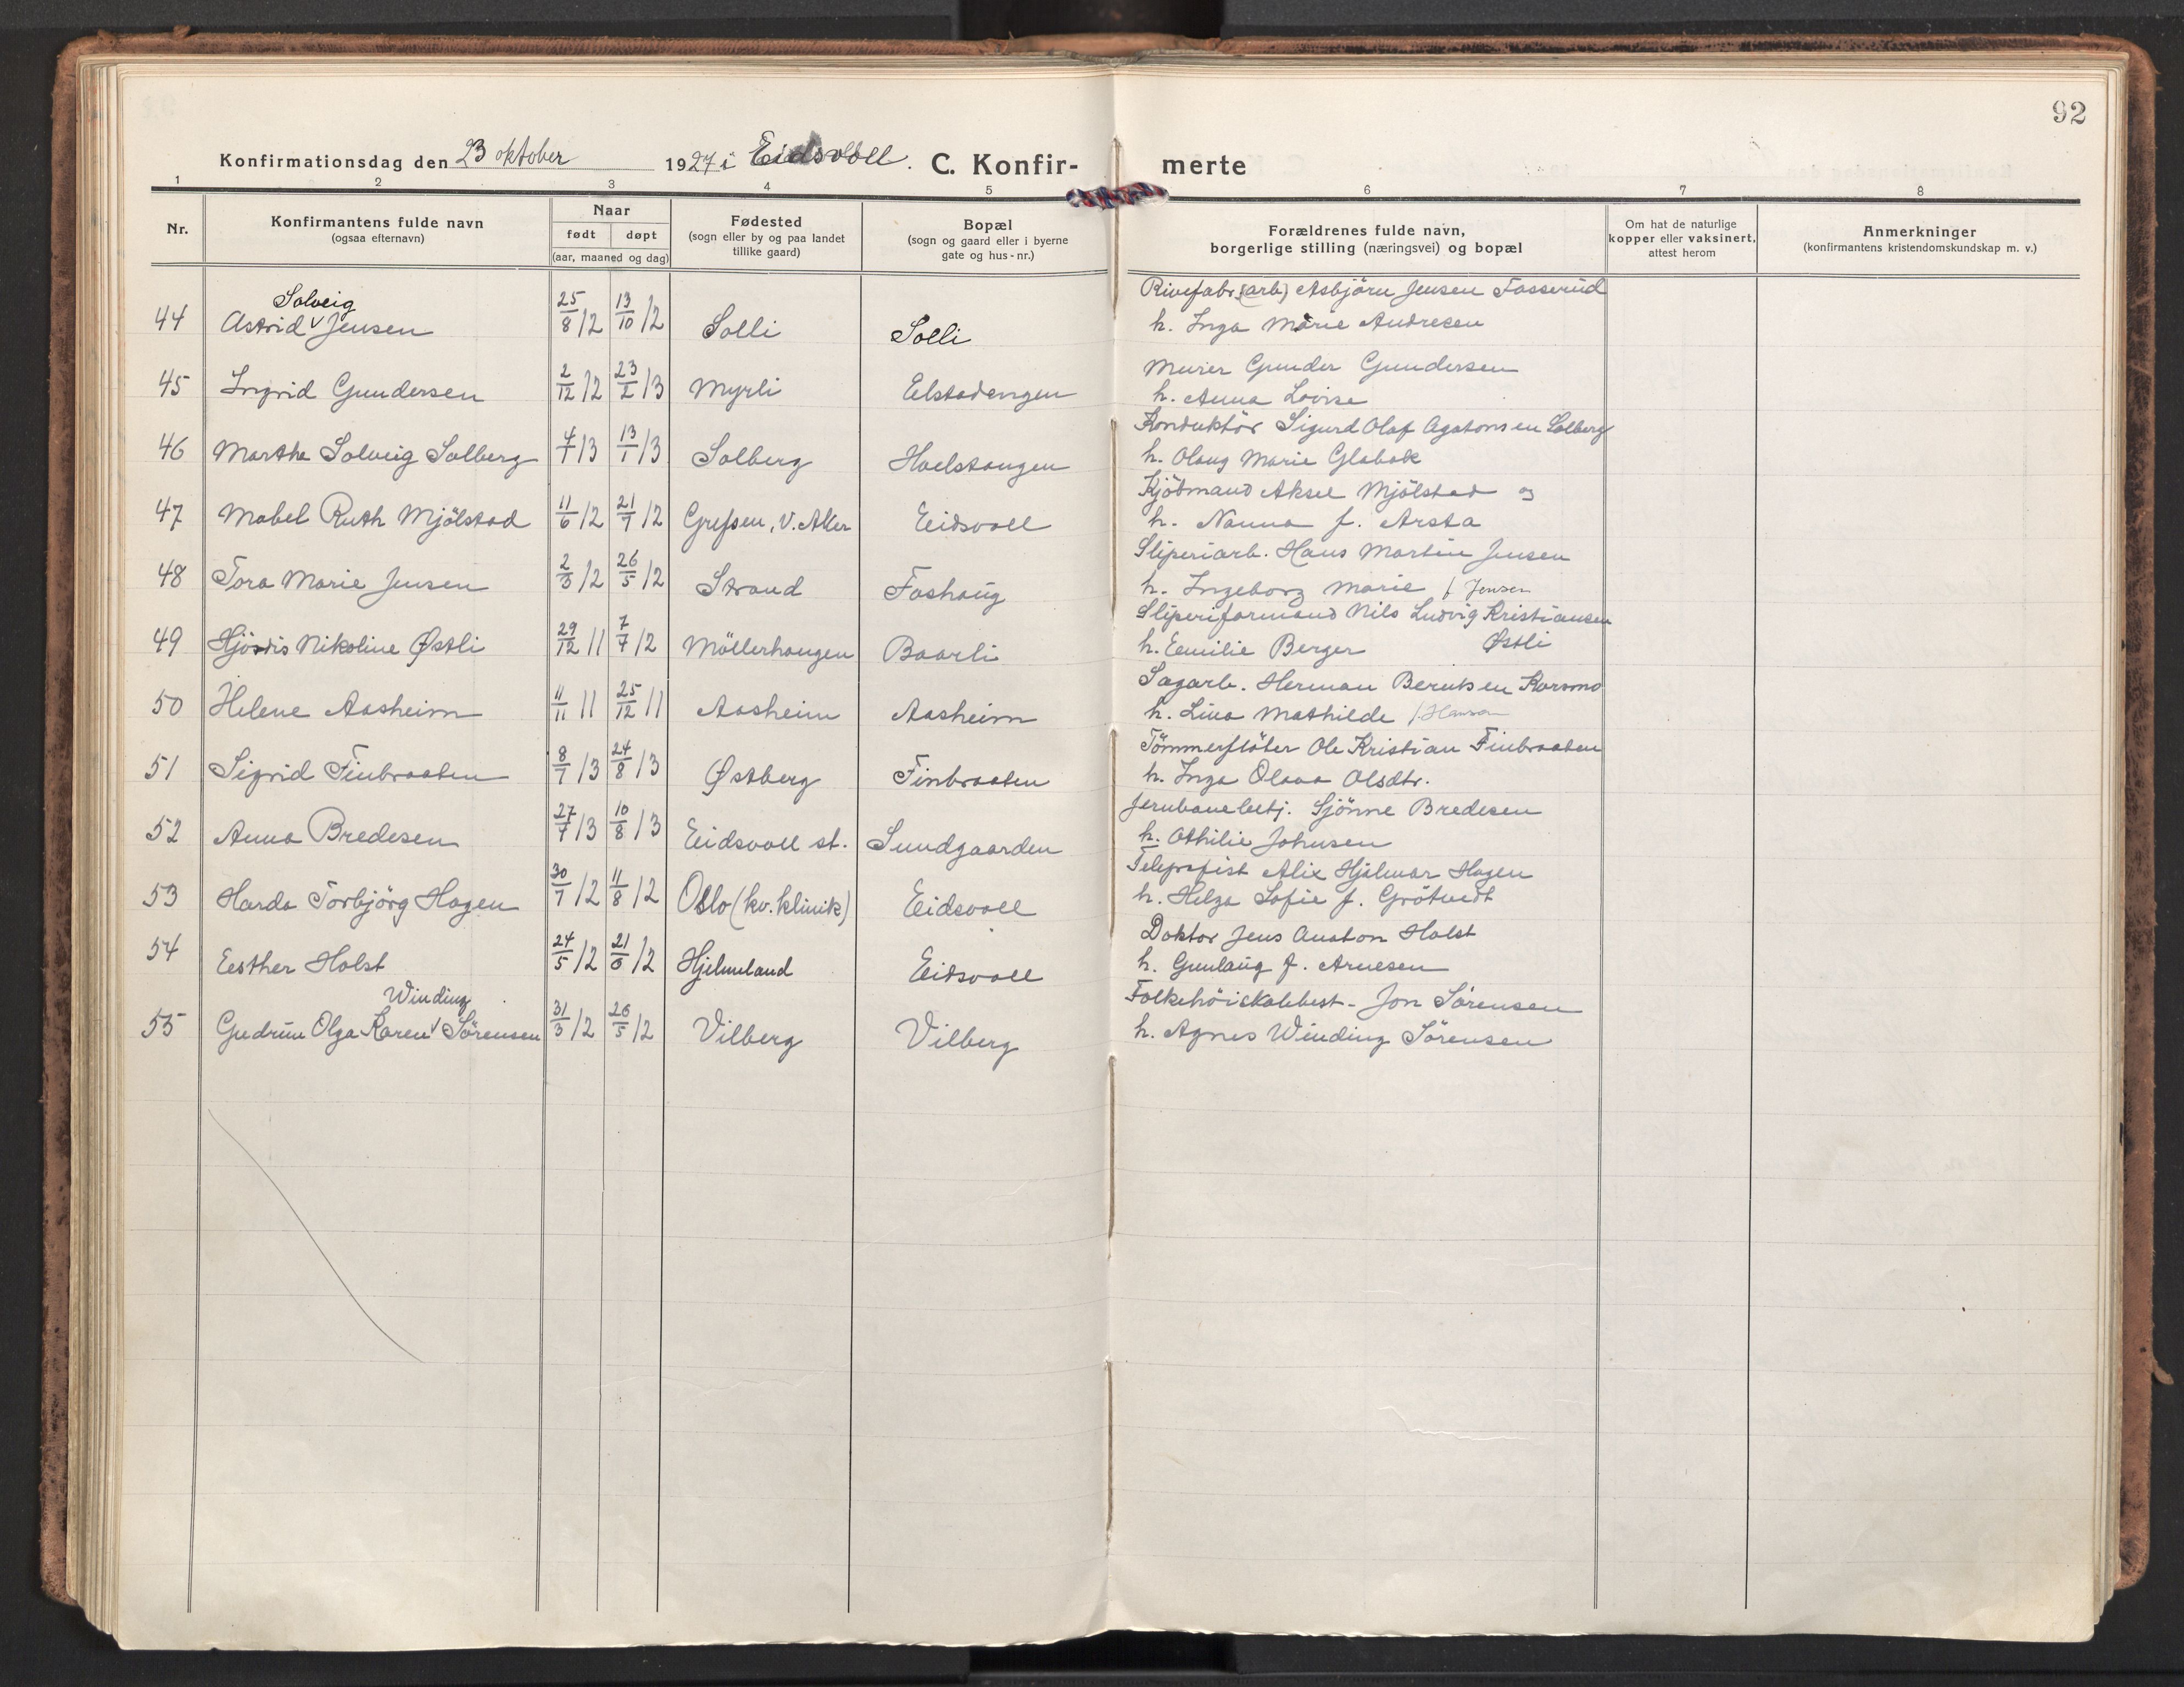 92
Konfirmationsdag den 23 oktober 1927 i Eidsvoll. C. Konfirmerte
1 2 3 4 5 6 7 8
Nr.
Konfirmantens fulde navn
(ogsaa efternavn)
Naar
født døpt
(aar, maaned og dag)
Fødested
(sogn eller by og paa landet
tillike gaard)
Bopæl
(sogn og gaard eller i byerne
gate og hus-nr.)
Forældrenes fulde navn,
borgerlige stilling (næringsvei) og bopæl
Om hat de naturlige
kopper eller vaksinert,
attest herom
Anmerkninger
(konfirmantens kristendomskundskap m. v.)
Solveig
44 Astrid ᵛ Jensen 25/8 12 13/10 12 Solli Solli
Rivefabr. (arb) Asbjörn Jensen Fosserud
h. Inga Marie Andresen
45 Ingrid Gundersen 2/12 12 23/2 13 Myrli Elstadengen
Murer Gunder Gundersen
h. Anna Lovise
46 Marthe Solveig Solberg 4/1 13 13/1 13 Solberg Hoelstangen
Konduktör Sigurd Olaf Agatonsen Solberg
h. Olaug Marie Globak
47 Mabel Ruth Mjölstad 11/6 12 21/7 12 Grefsen, V. Aker Eidsvoll
Kjöbmand Aksel Mjölstad og
h. Nanna f. Arsta
48 Tora Marie Jensen 2/3 12 26/5 12 Strand Foshaug
Sliperiarb. Hans Martin Jensen
h. Ingeborg Marie f Jensen
49 Hjördis Nikoline Østli 29/12 11 7/7 12 Möllerhaugen Baarli
Sliperiformand Nils Ludvig Kristiansen
h. Emilie Berger Østli
50 Helene Aasheim 11/11 11 25/12 11 Aasheim Aasheim
Sagarb. Herman Berntsen Korsmo
h. Lina Mathilde f. Hansen
51 Sigrid Finbraaten 8/7 13 24/8 13 Østberg Finbraaten
Tömmerflöter Ole Kristian Finbraaten
h. Inga Olava Olsdtr.
52 Anna Bredesen 27/7 13 10/8 13 Eidsvoll st. Sundgaarden
Jernbanebetj. Sjönne Bredesen
h. Othilie Johnsen
53 Harda Torbjörg Hagen 30/7 12 11/8 12 Oslo (kv. klinik) Eidsvoll
Telegrafist Alix Hjalmar Hagen
h. Helga Sofie f. Grötvedt
54 Esther Holst 24/5 12 21/6 12 Hjelmeland Eidsvoll
Doktor Jens Anton Holst
h. Gunlaug f. Arnesen
Winding
55 Gudrun Olga Karen ᵛ Sörensen 31/3 12 26/5 12 Vilberg Vilberg
Folkehöiskolebest. Jon Sörensen
h. Agnes Winding Sörensen